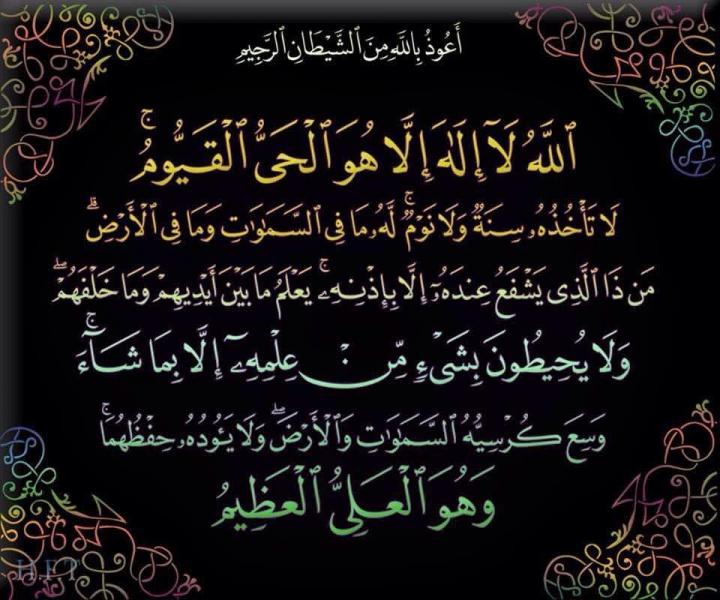 أَعُوذُ بِٱللَّهِ مِنَ ٱلشَّيْطَانِ ٱلرَّجِيمِ
ٱللَّهُ لَآ إِلَٰهَ إِلَّا هُوَ ٱلْحَىُّ ٱلْقَيُّومُ ۚ
لَا تَأْخُذُهُۥ سِنَةٌ وَلَا نَوْمٌ ۚ لَّهُۥ مَا فِى ٱلسَّمَٰوَٰتِ وَمَا فِى ٱلْأَرْضِ ۗ
مَن ذَا ٱلَّذِى يَشْفَعُ عِندَهُۥٓ إِلَّا بِإِذْنِهِۦ ۚ يَعْلَمُ مَا بَيْنَ أَيْدِيهِمْ وَمَا خَلْفَهُمْ ۖ
وَلَا يُحِيطُونَ بِشَىْءٍ مِّنْ عِلْمِهِۦٓ إِلَّا بِمَا شَآءَ ۚ
وَسِعَ كُرْسِيُّهُ ٱلسَّمَٰوَٰتِ وَٱلْأَرْضَ ۖ وَلَا يَـُٔودُهُۥ حِفْظُهُمَا ۚ
وَهُوَ ٱلْعَلِىُّ ٱلْعَظِيمُ
H.F.T